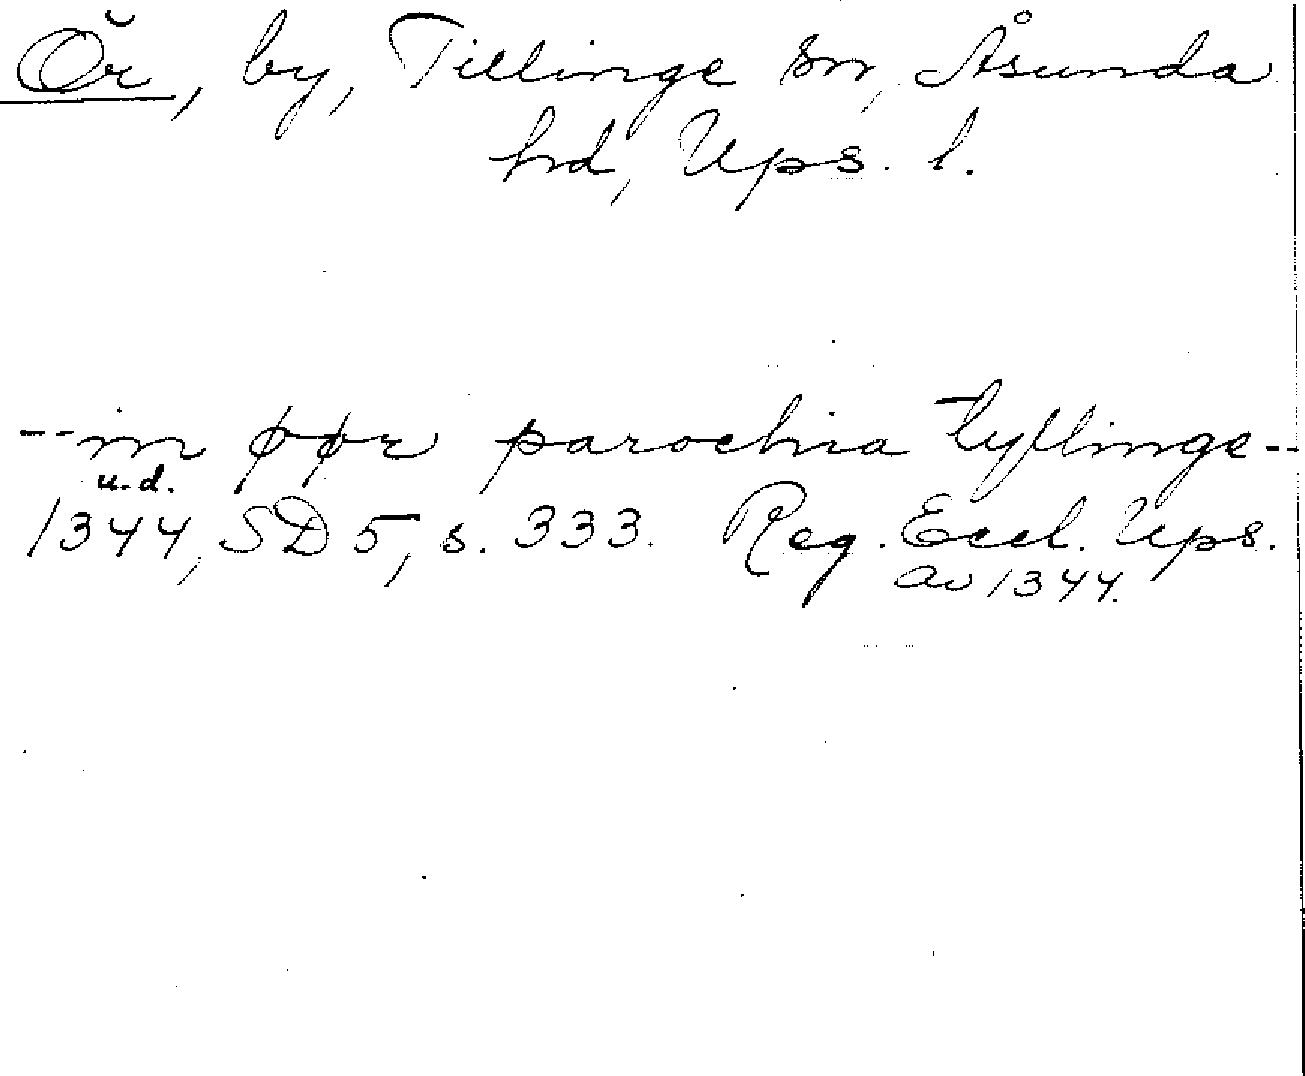 Ör, by, Tillinge sn, Åsunda
hd, Ups. l.
-- in øør parochia tyllinge --
u.d.
1344, SD 5, s. 333. Reg. Eccl. Ups.
av 1344.